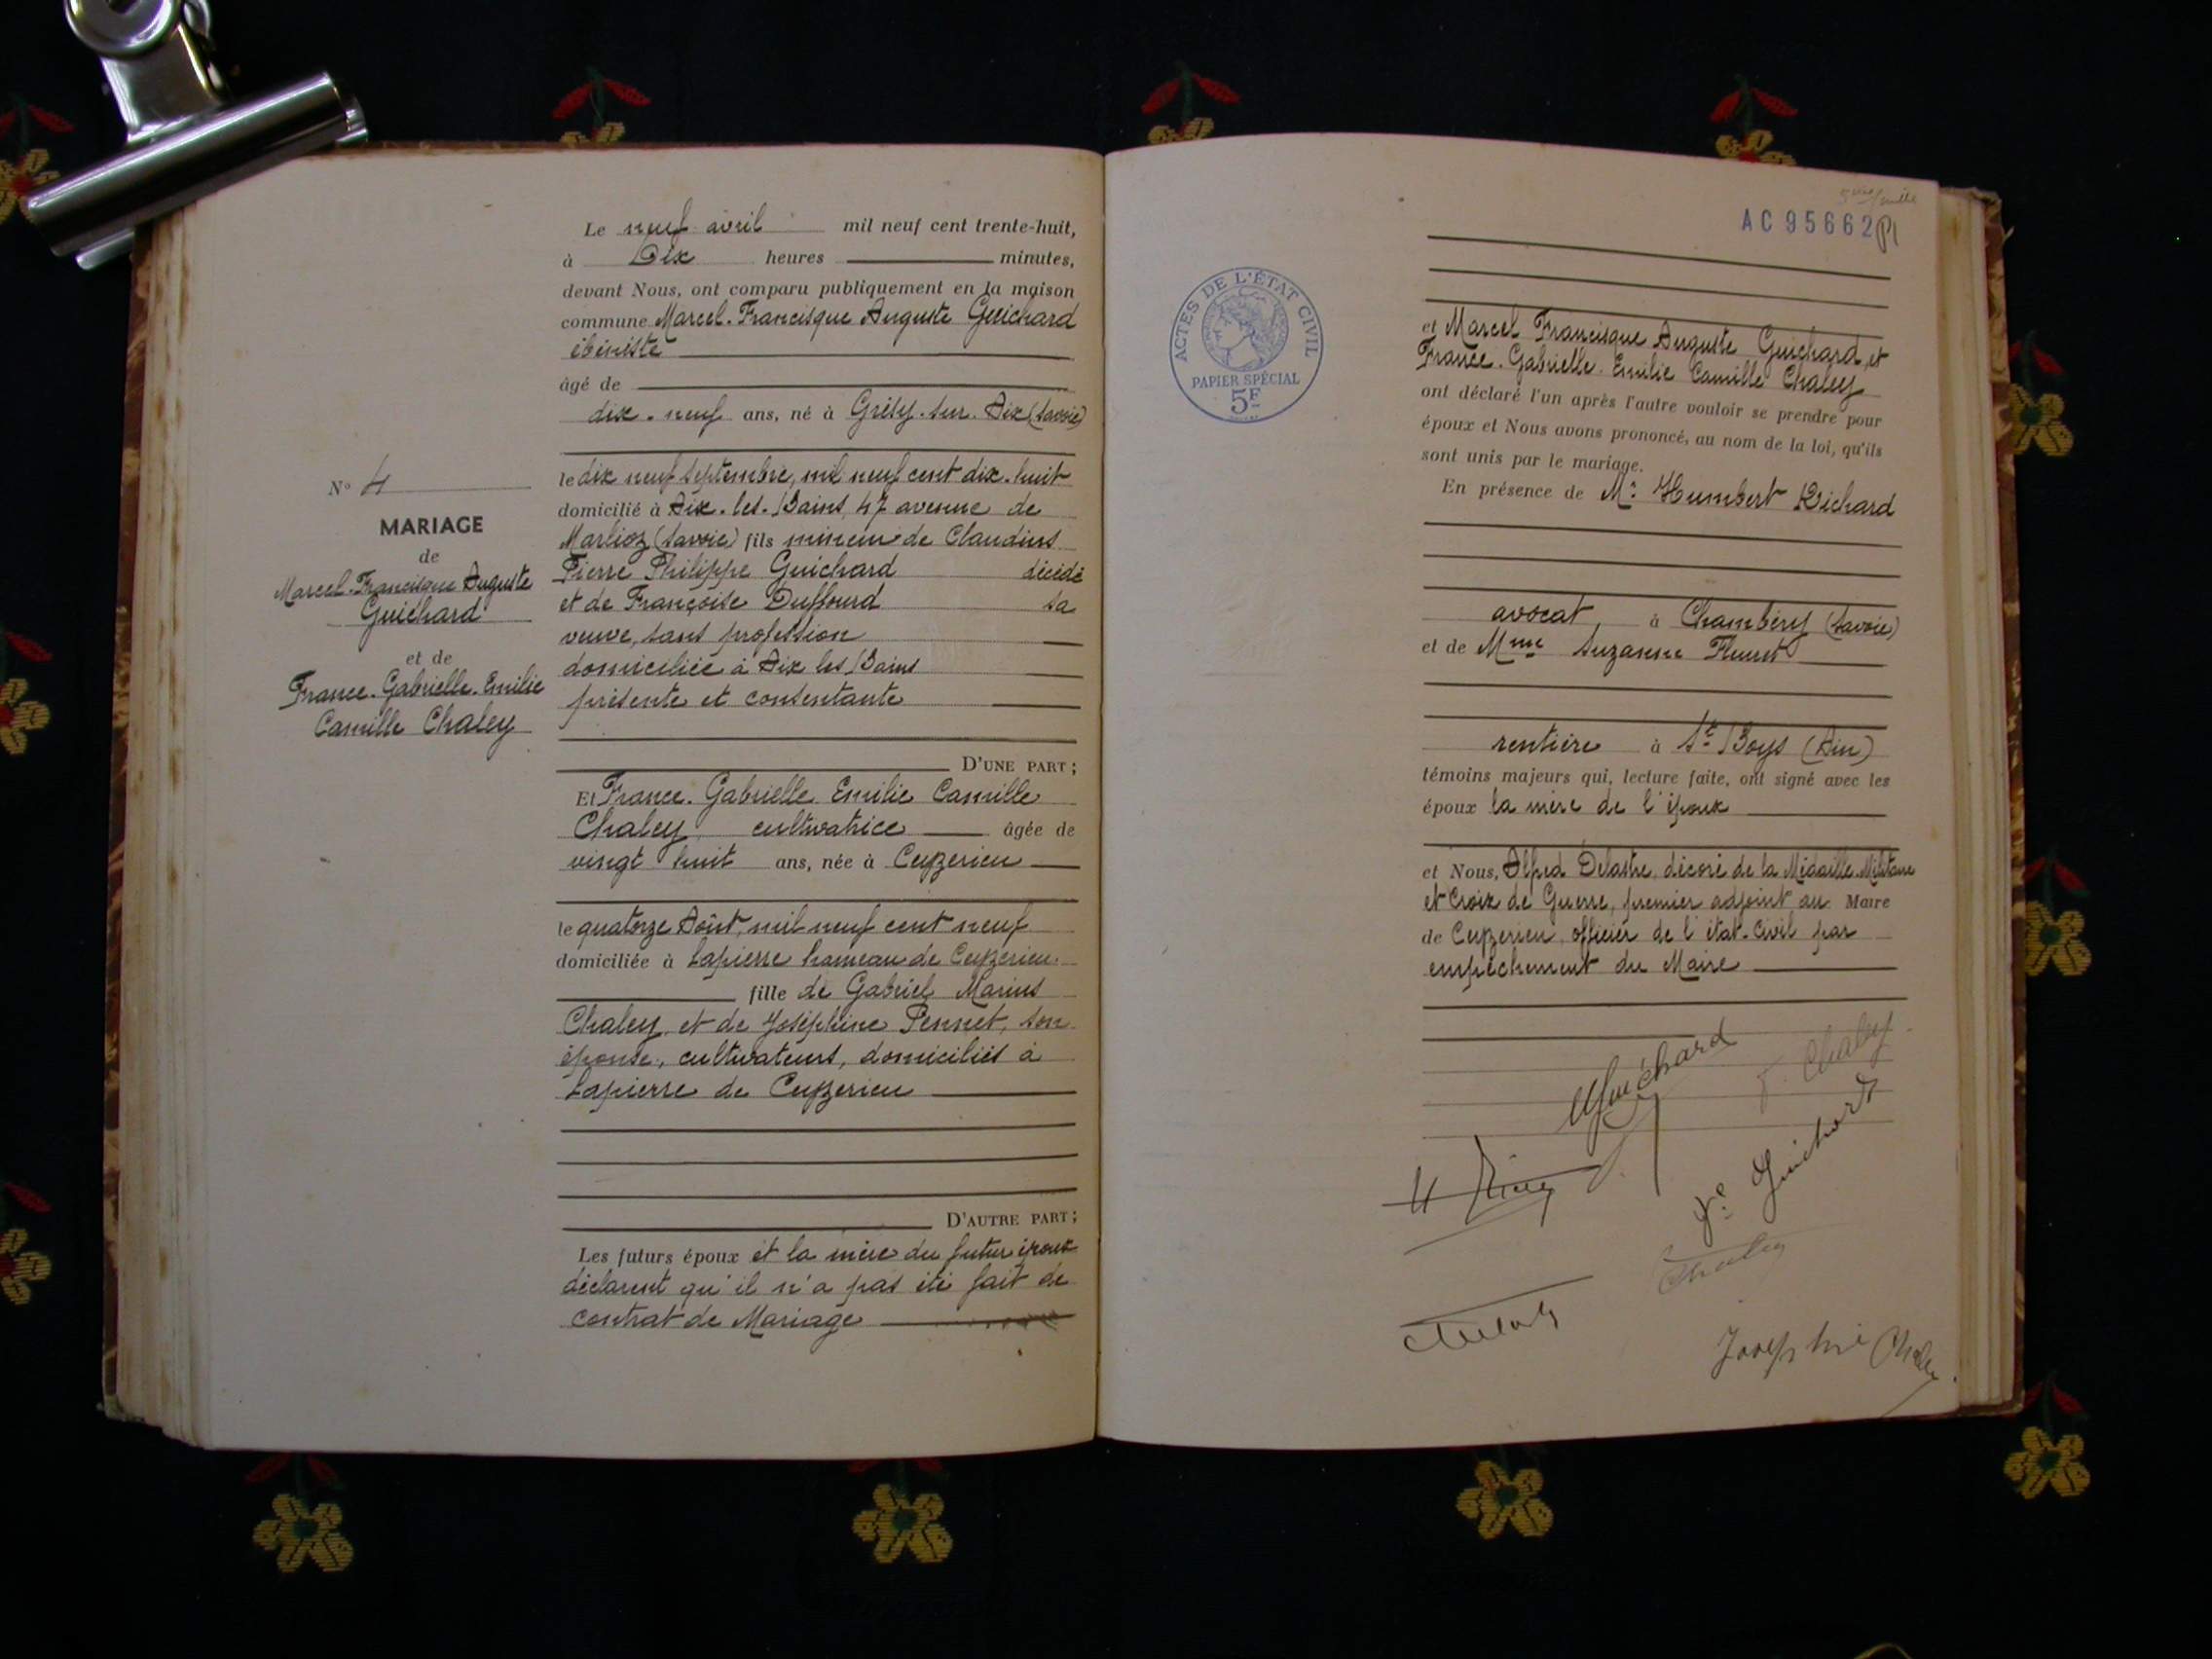 Le neuf avril mil neuf cent trente-huit,
à Dix heures minutes,
devant Nous, ont comparu publiquement en la maison
commune Marcel-Francisque Auguste Guichard
ébéniste
âgé de
dix-neuf ans, né à Grésy-sur-Aix (Savoie)
le dix neuf septembre, mil neuf cent dix-huit
domicilié à Aix-les-Bains, 47 avenue de
Marlioz (Savoie) fils mineur de Claudius
Pierre Philippe Guichard décédé
et de Françoise Duffourd sa
veuve, sans profession
domiciliée à Aix les Bains
présente et consentante
D'UNE PART;
N° 4
MARIAGE
de
Marcel-Francisque Auguste
Guichard
et de
France-Gabrielle-Emilie
Camille Chaley
Et France-Gabrielle Emilie Camille
Chaley, cultivatrice âgée de
vingt huit ans, née à Ceyzerieu
le quatorze Août, mil neuf cent neuf
domiciliée à Lapierre hameau de Ceyzerieu
fille de Gabriel Marius
Chaley et de Joséphine Pennet, son
épouse, cultivateurs, domiciliés à
Lapierre de Ceyzerieu
D'AUTRE PART;
Les futurs époux et la mère du futur époux
déclarent qu'il n'a pas été fait de
contrat de Mariage
AC 95662
ACTES DE L'ÉTAT CIVIL
PAPIER SPÉCIAL
5F
et Marcel Francisque Auguste Guichard, et
France-Gabrielle-Emilie Camille Chaley
ont déclaré l'un après l'autre vouloir se prendre pour
époux et Nous avons prononcé, au nom de la loi, qu'ils
sont unis par le mariage.
En présence de Mr Humbert Richard
avocat à Chambéry (Savoie)
et de Mme Suzanne
rentière à St Boys (Ain)
témoins majeurs qui, lecture faite, ont signé avec les
époux la mère de l'époux
et Nous, Alfred Delastre, décoré de la Médaille Militaire
et Croix de Guerre, premier adjoint au Maire
de Ceyzerieu, officier de l'état-civil par
empêchement du Maire
Guichard
F. Chaley
Guichard
Chaley
Joséphine Chaley